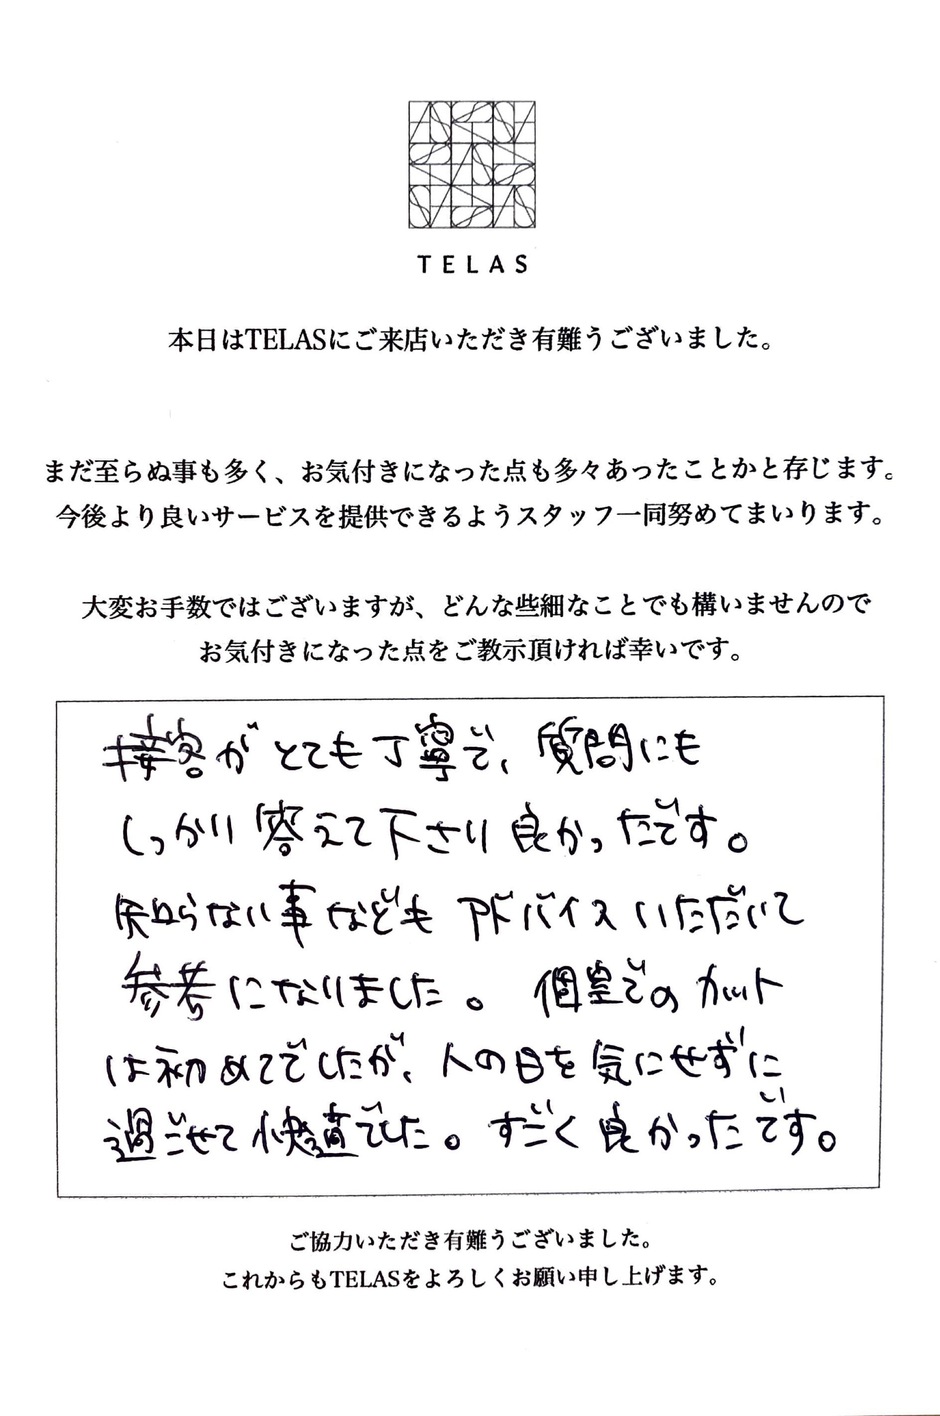 TELAS
本日はTELASにご来店いただき有難うございました。
まだ至らぬ事も多く、お気付きになった点も多々あったことかと存じます。
今後より良いサービスを提供できるようスタッフ一同努めてまいります。
大変お手数ではございますが、どんな些細なことでも構いませんので
お気付きになった点をご教示頂ければ幸いです。
接客がとても丁寧で、質問にも
しっかり答えて下さり良かったです。
知らない事などもアドバイスいただいて
参考になりました。個室でのカット
は初めてでしたが、人の目を気にせずに
過ごせて快適でした。すごく良かったです。
ご協力いただき有難うございました。
これからもTELASをよろしくお願い申し上げます。